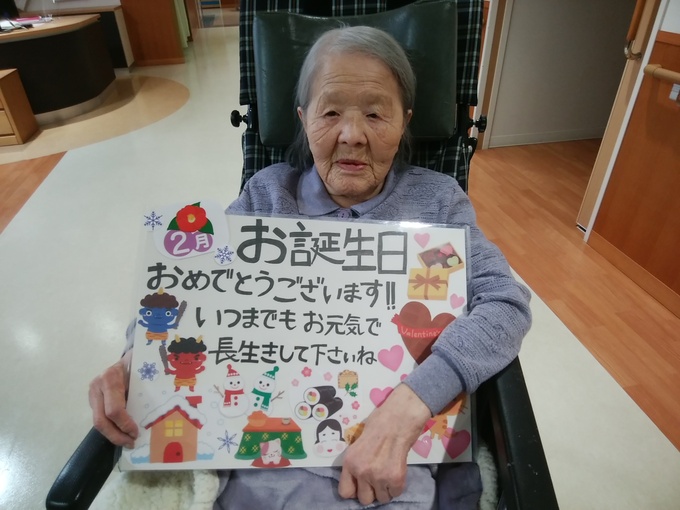 2月
お誕生日
おめでとうございます!!
いつまでも お元気で
長生きして下さいね
Valentine